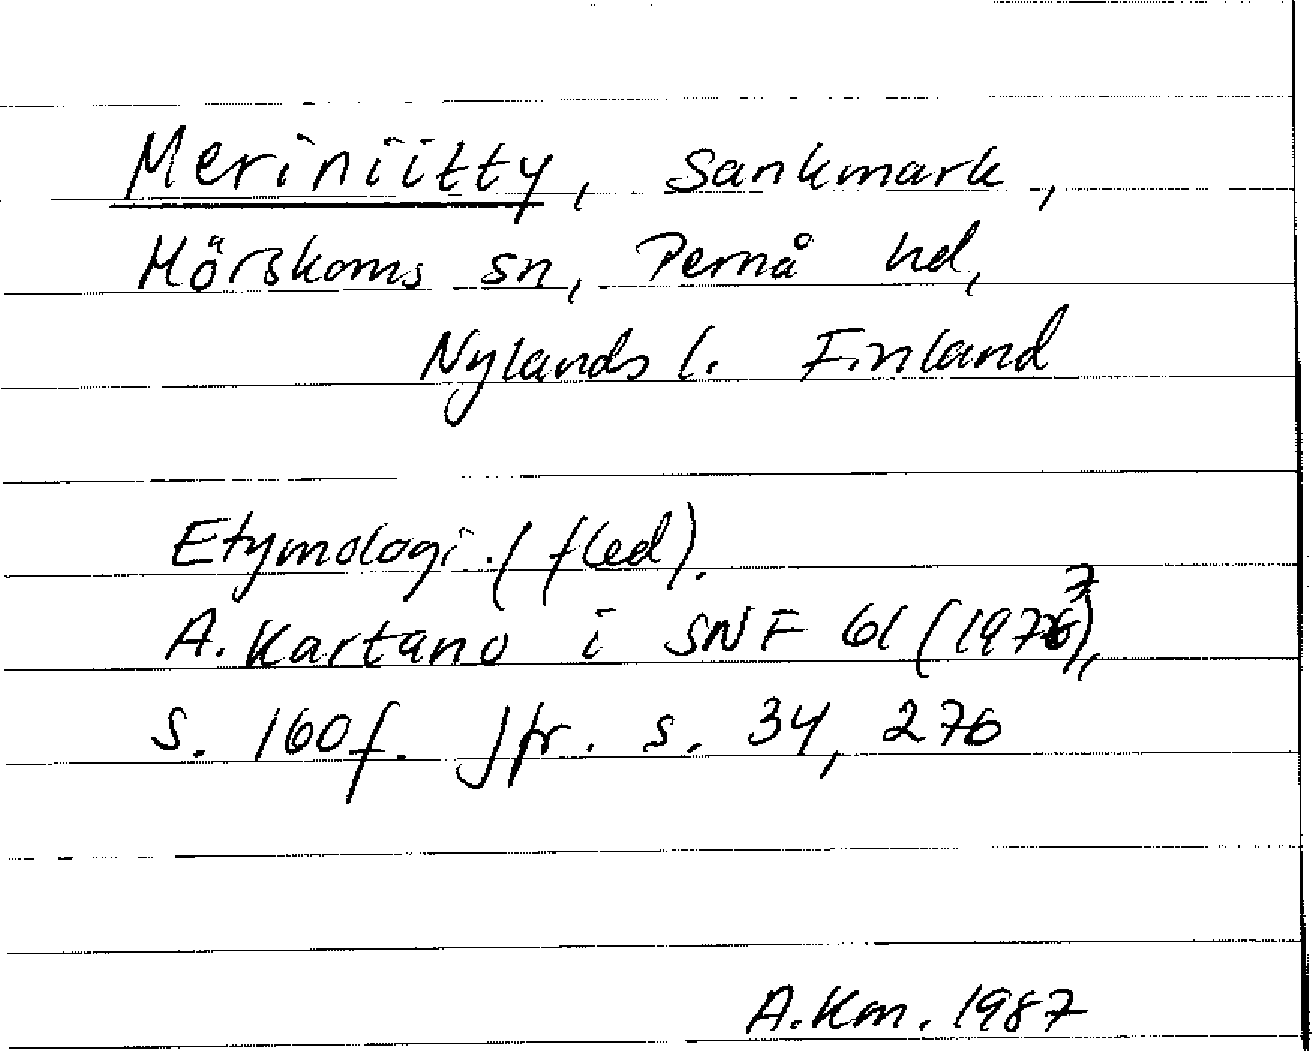 Meriniitty, Sankmark,
Mörskoms sn, Pernå hd,
Nylands l. Finland
Etymologi. (fled).
A. Kartano i SNF 61 (1977),
s. 160f. Jfr. s. 34, 276
A.Km. 1987